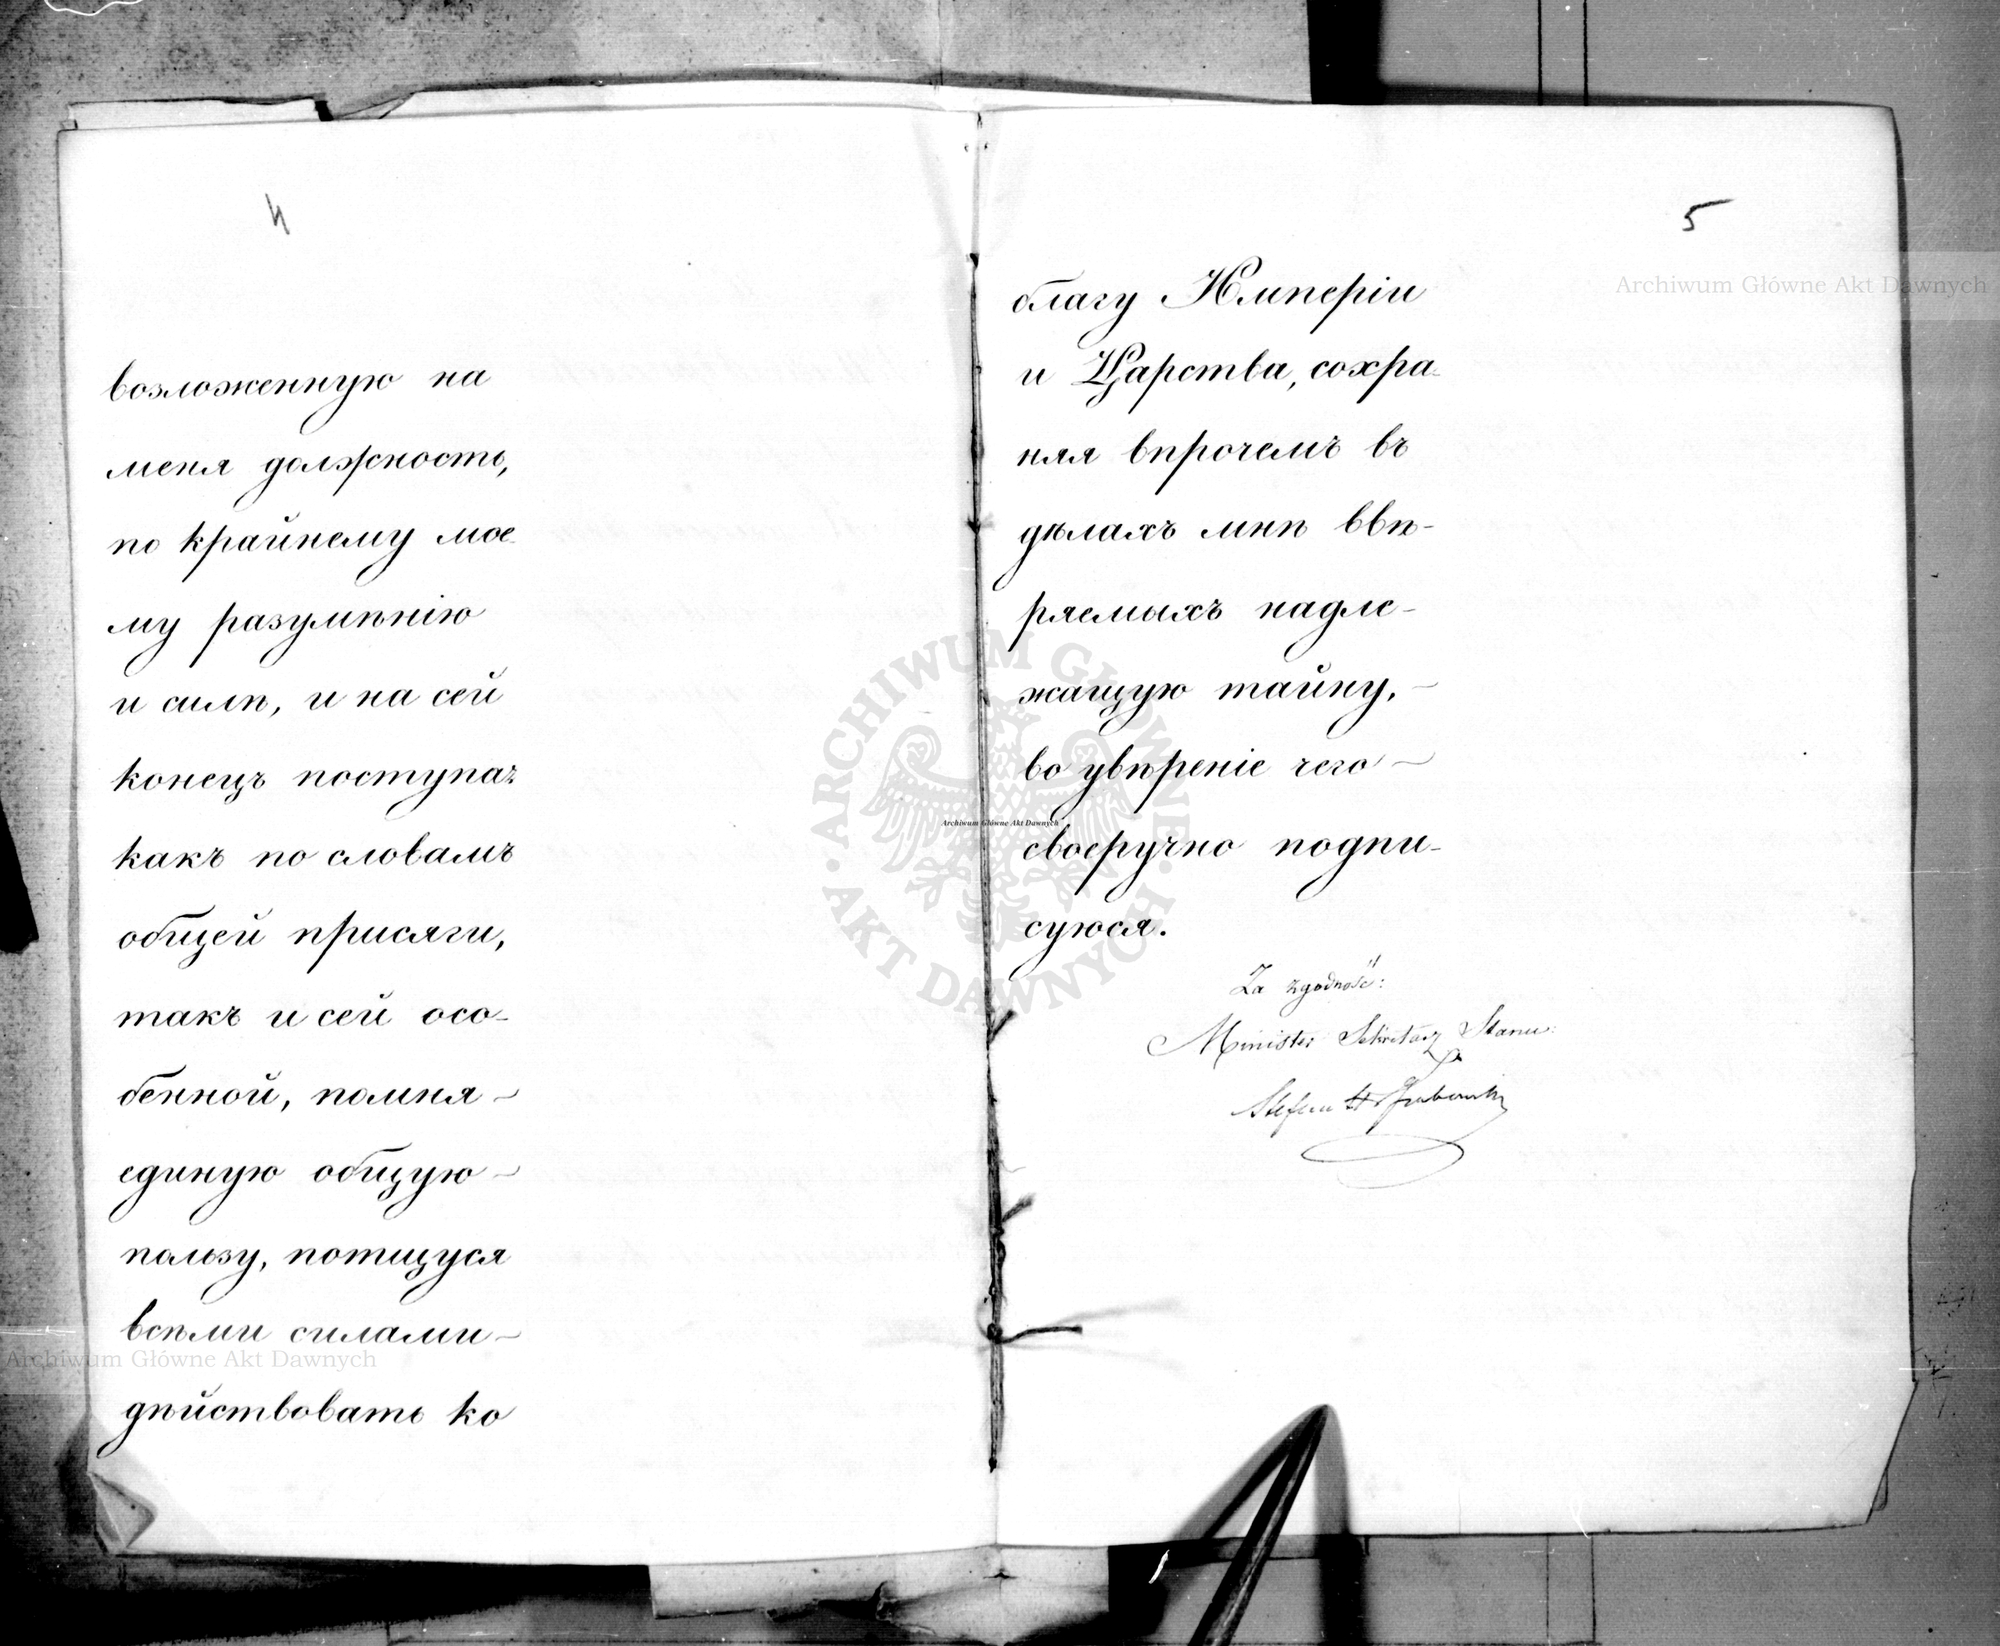 4
возложенную на
меня должность,
по крайнему мое-
му разумѣнію
и силѣ, и на сей
конецъ поступа-
какъ по словамъ
общей присяги,
такъ и сей осо-
бенной, помня
единую общую
пользу, потщуся
всѣми силами
дѣйствовать ко
5
благу Имперіи
и Царства, сохра-
няя впрочемъ въ
дѣлахъ мнѣ ввѣ-
ряемыхъ надле-
жащую тайну,
во увѣреніе чего
своеручно подпи-
суюся.
Za zgodność:
Minister Sekretarz Stanu
Stefan Grabowski
Archiwum Główne Akt Dawnych
Archiwum Główne Akt Dawnych
Archiwum Główne Akt Dawnych
ARCHIWUM GŁÓWNE AKT DAWNYCH